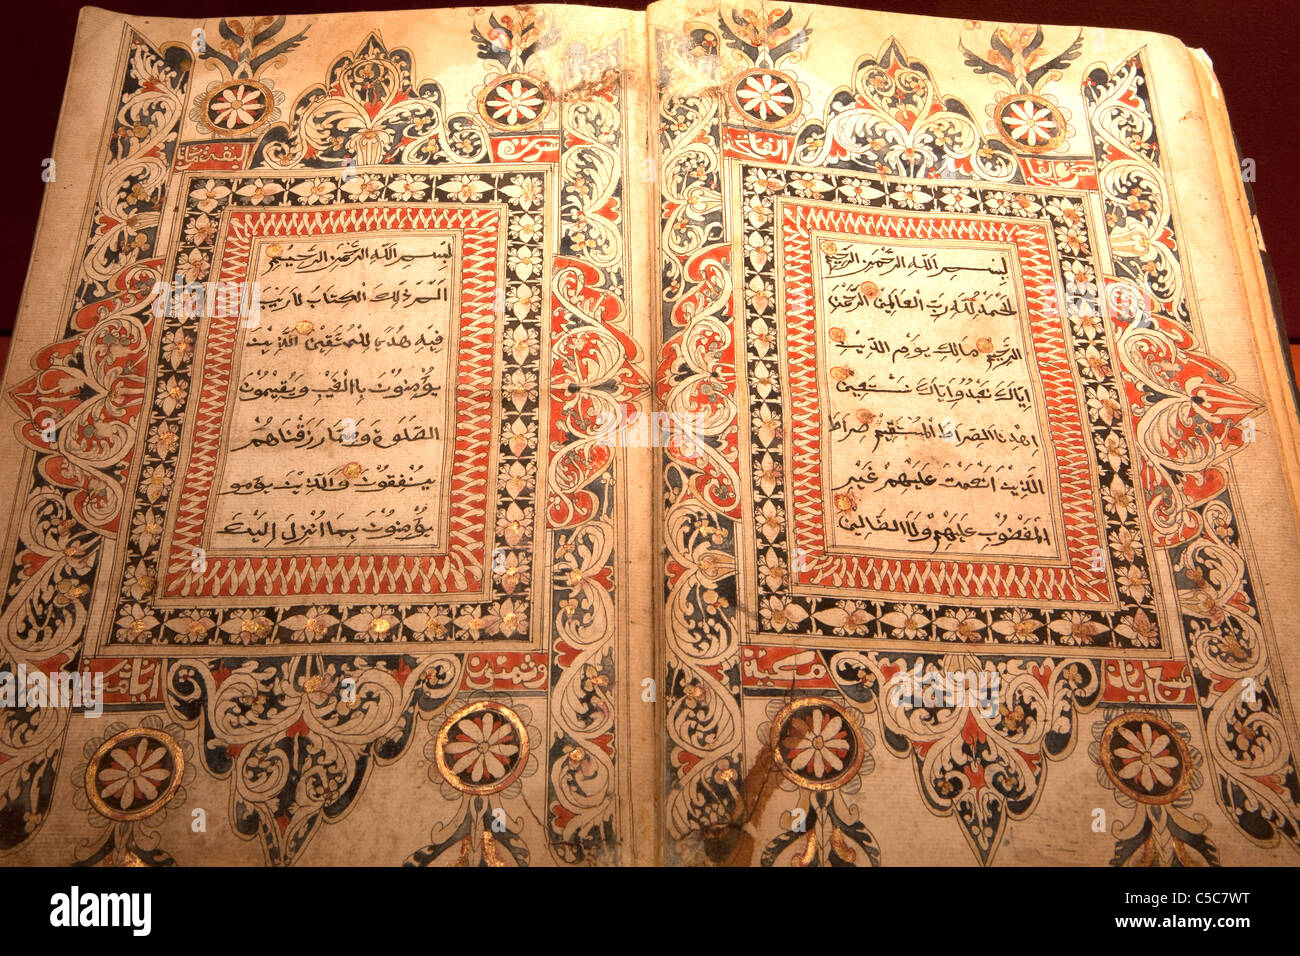 سورة الفاتحة
بسم الله الرحمن الرحيم
الحمد لله رب العالمين الرحمن
الرحيم مالك يوم الدين
إياك نعبد وإياك نستعين
اهدنا الصراط المستقيم صراط
الذين أنعمت عليهم غير
المغضوب عليهم ولا الضالين
سبع آيات مكية
سورة
بسم الله الرحمن الرحيم
الم ذلك الكتاب لا ريب
فيه هدى للمتقين الذين
يؤمنون بالغيب ويقيمون
الصلوة ومما رزقناهم
ينفقون والذين يؤمنو
يؤمنون بما أنزل إليك
وثمنون
alamy
Image ID: C5C7WT
www.alamy.com